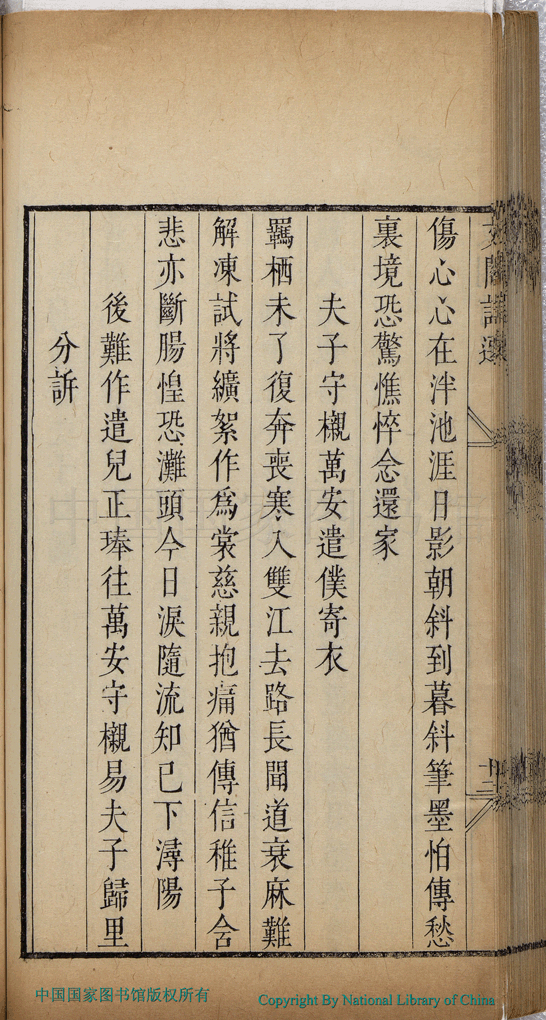 傷心心在泮池涯日影朝斜到暮斜筆墨怕傳愁
裏境恐驚憔悴念還家
夫子守櫬萬安遣僕寄衣
羈栖未了復奔喪寒入雙江去路長聞道衰麻難
解凍試將纊絮作爲裳慈親抱痛猶傳信稚子含
悲亦斷腸惶恐灘頭今日淚隨流知已下潯陽
後難作遣兒正琫往萬安守櫬易夫子歸里
分訴
十三
中国国家图书馆版权所有
Copyright By National Library of China